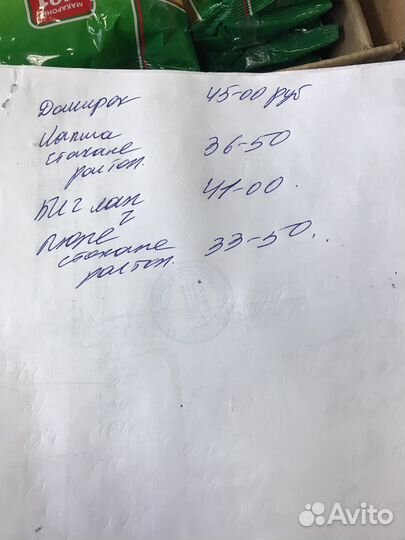 МАКАРОНН
Доширак 45-00 руб
Лапша
стакане 36-50
ролтон.
БИГ ланч 41-00.
Пюре
стакане 33-50..
ролтон.
Avito